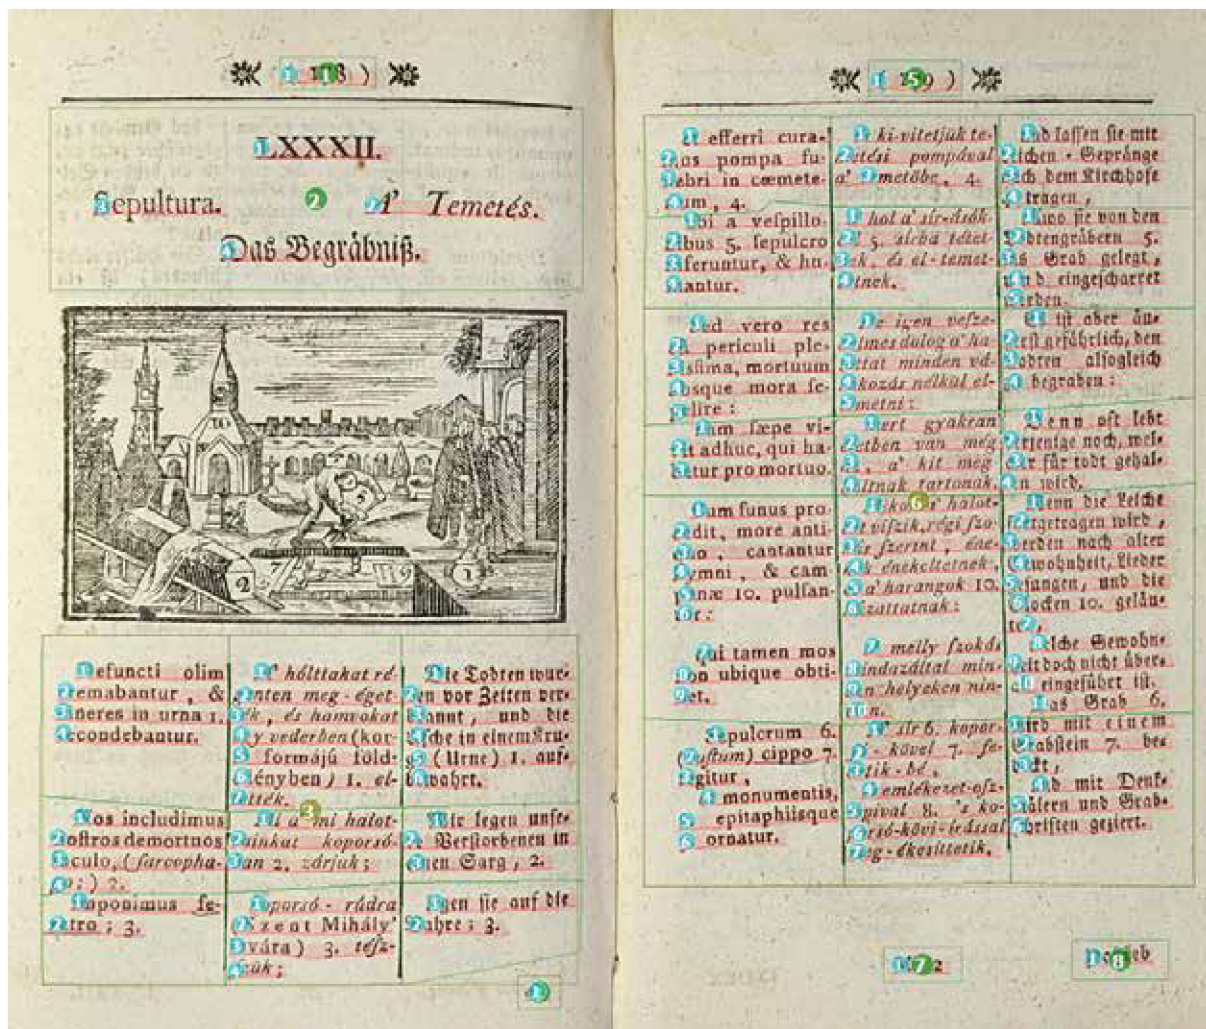 ( 118 )
LXXXII.
Sepultura.
A' Temetés.
Das Begräbniß.
Defuncti olim
cremabantur, &
cineres in urna 1.
recondebantur.
Nos includimus
nostros demortuos
loculo, (sarcopha-
go:) 2.
Imponimus fe-
retro; 3.
A' hólttakat ré-
genten meg-éget-
ték, és hamvokat
egy vederben (kor-
só formájú föld-
edényben) 1. el-
tették.
Mi a' mi halot-
tainkat koporsó-
ban 2. zárjuk;
Koporsó-rúdra
(Szent Mihály'
lovára) 3. tész-
szük;
Die Todten wur-
den vor Zeiten ver-
brannt, und die
Asche in einem Kru-
ge (Urne) 1. auf-
bewahrt.
Wir legen unse-
re Verstorbenen in
einen Sarg, 2.
legen sie auf die
Bahre; 3.
( 119 )
Et efferri cura-
mus pompa fu-
nebri in cœmete-
rium, 4.
Ubi a vespillo-
nibus 5. sepulcro
inferuntur, & hu-
mantur.
Sed vero res
est periculi ple-
nissima, mortuum
absque mora se-
pelire:
Nam sæpe vi-
vit adhuc, qui ha-
betur pro mortuo.
Cum funus pro-
dit, more anti-
quo, cantantur
hymni, & cam-
panæ 10. pulsan-
tur:
Qui tamen mos
non ubique obti-
net.
Sepulcrum 6.
(bustum) cippo 7.
tegitur,
monumentis,
epitaphiisque
ornatur.
ki-vitetjük te-
metési pompával
a' temetőbe, 4.
A' hol a' sír-ásók
5. sírba tétet-
nek, és el-temet-
tetnek.
De igen vesze-
delmes dolog a' ha-
lottat minden vá-
rakozás nélkül el-
temetni:
Mert gyakran
életben van még
a' kit meg
hóltnak tartonak.
Mikor a' halot-
tat viszik, régi szo-
kás szerint, éne-
kek énekeltetnek,
a' harangok 10.
húzattatnak:
melly szokás
mindazáltal min-
den helyeken nin-
tsen.
A' sír 6. kopor-
só-kővel 7. fe-
dettetik-bé,
emlékezet-osz-
lopival 8. 's ko-
porsó-kövi-írással
meg-ékesíttetik.
Und lassen sie mit
Leichen-Gepränge
nach dem Kirchhofe
tragen,
wo sie von den
Todtengräbern 5.
ins Grab gelegt,
und eingescharret
werden.
Es ist aber äu-
ßerst gefährlich, den
Todten alsogleich
zu begraben:
Denn oft lebt
derjenige noch, wel-
cher für todt gehal-
ten wird.
Wenn die Leiche
hergetragen wird,
werden nach alter
Gewohnheit, Lieder
gesungen, und die
Glocken 10. geläu-
tet,
welche Gewohn-
heit doch nicht über-
all eingeführt ist.
Das Grab 6.
wird mit einem
Grabstein 7. be-
deckt,
und mit Denk-
mälern und Grab-
schriften geziert.